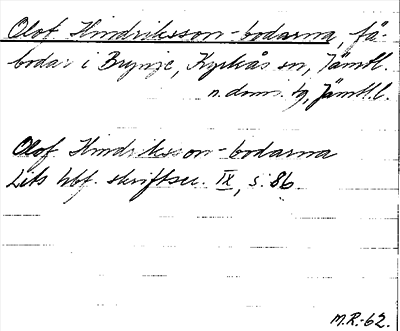 Olof Hindriksson-bodarna, fä-
bodar i Brynje, Kyrkås sn, Jämtl.
n. doms. tg, Jämtl. l.
Olof Hindriksson-bodarna
Lits hbf. skriftser. IX, s. 86
M.R.-62.